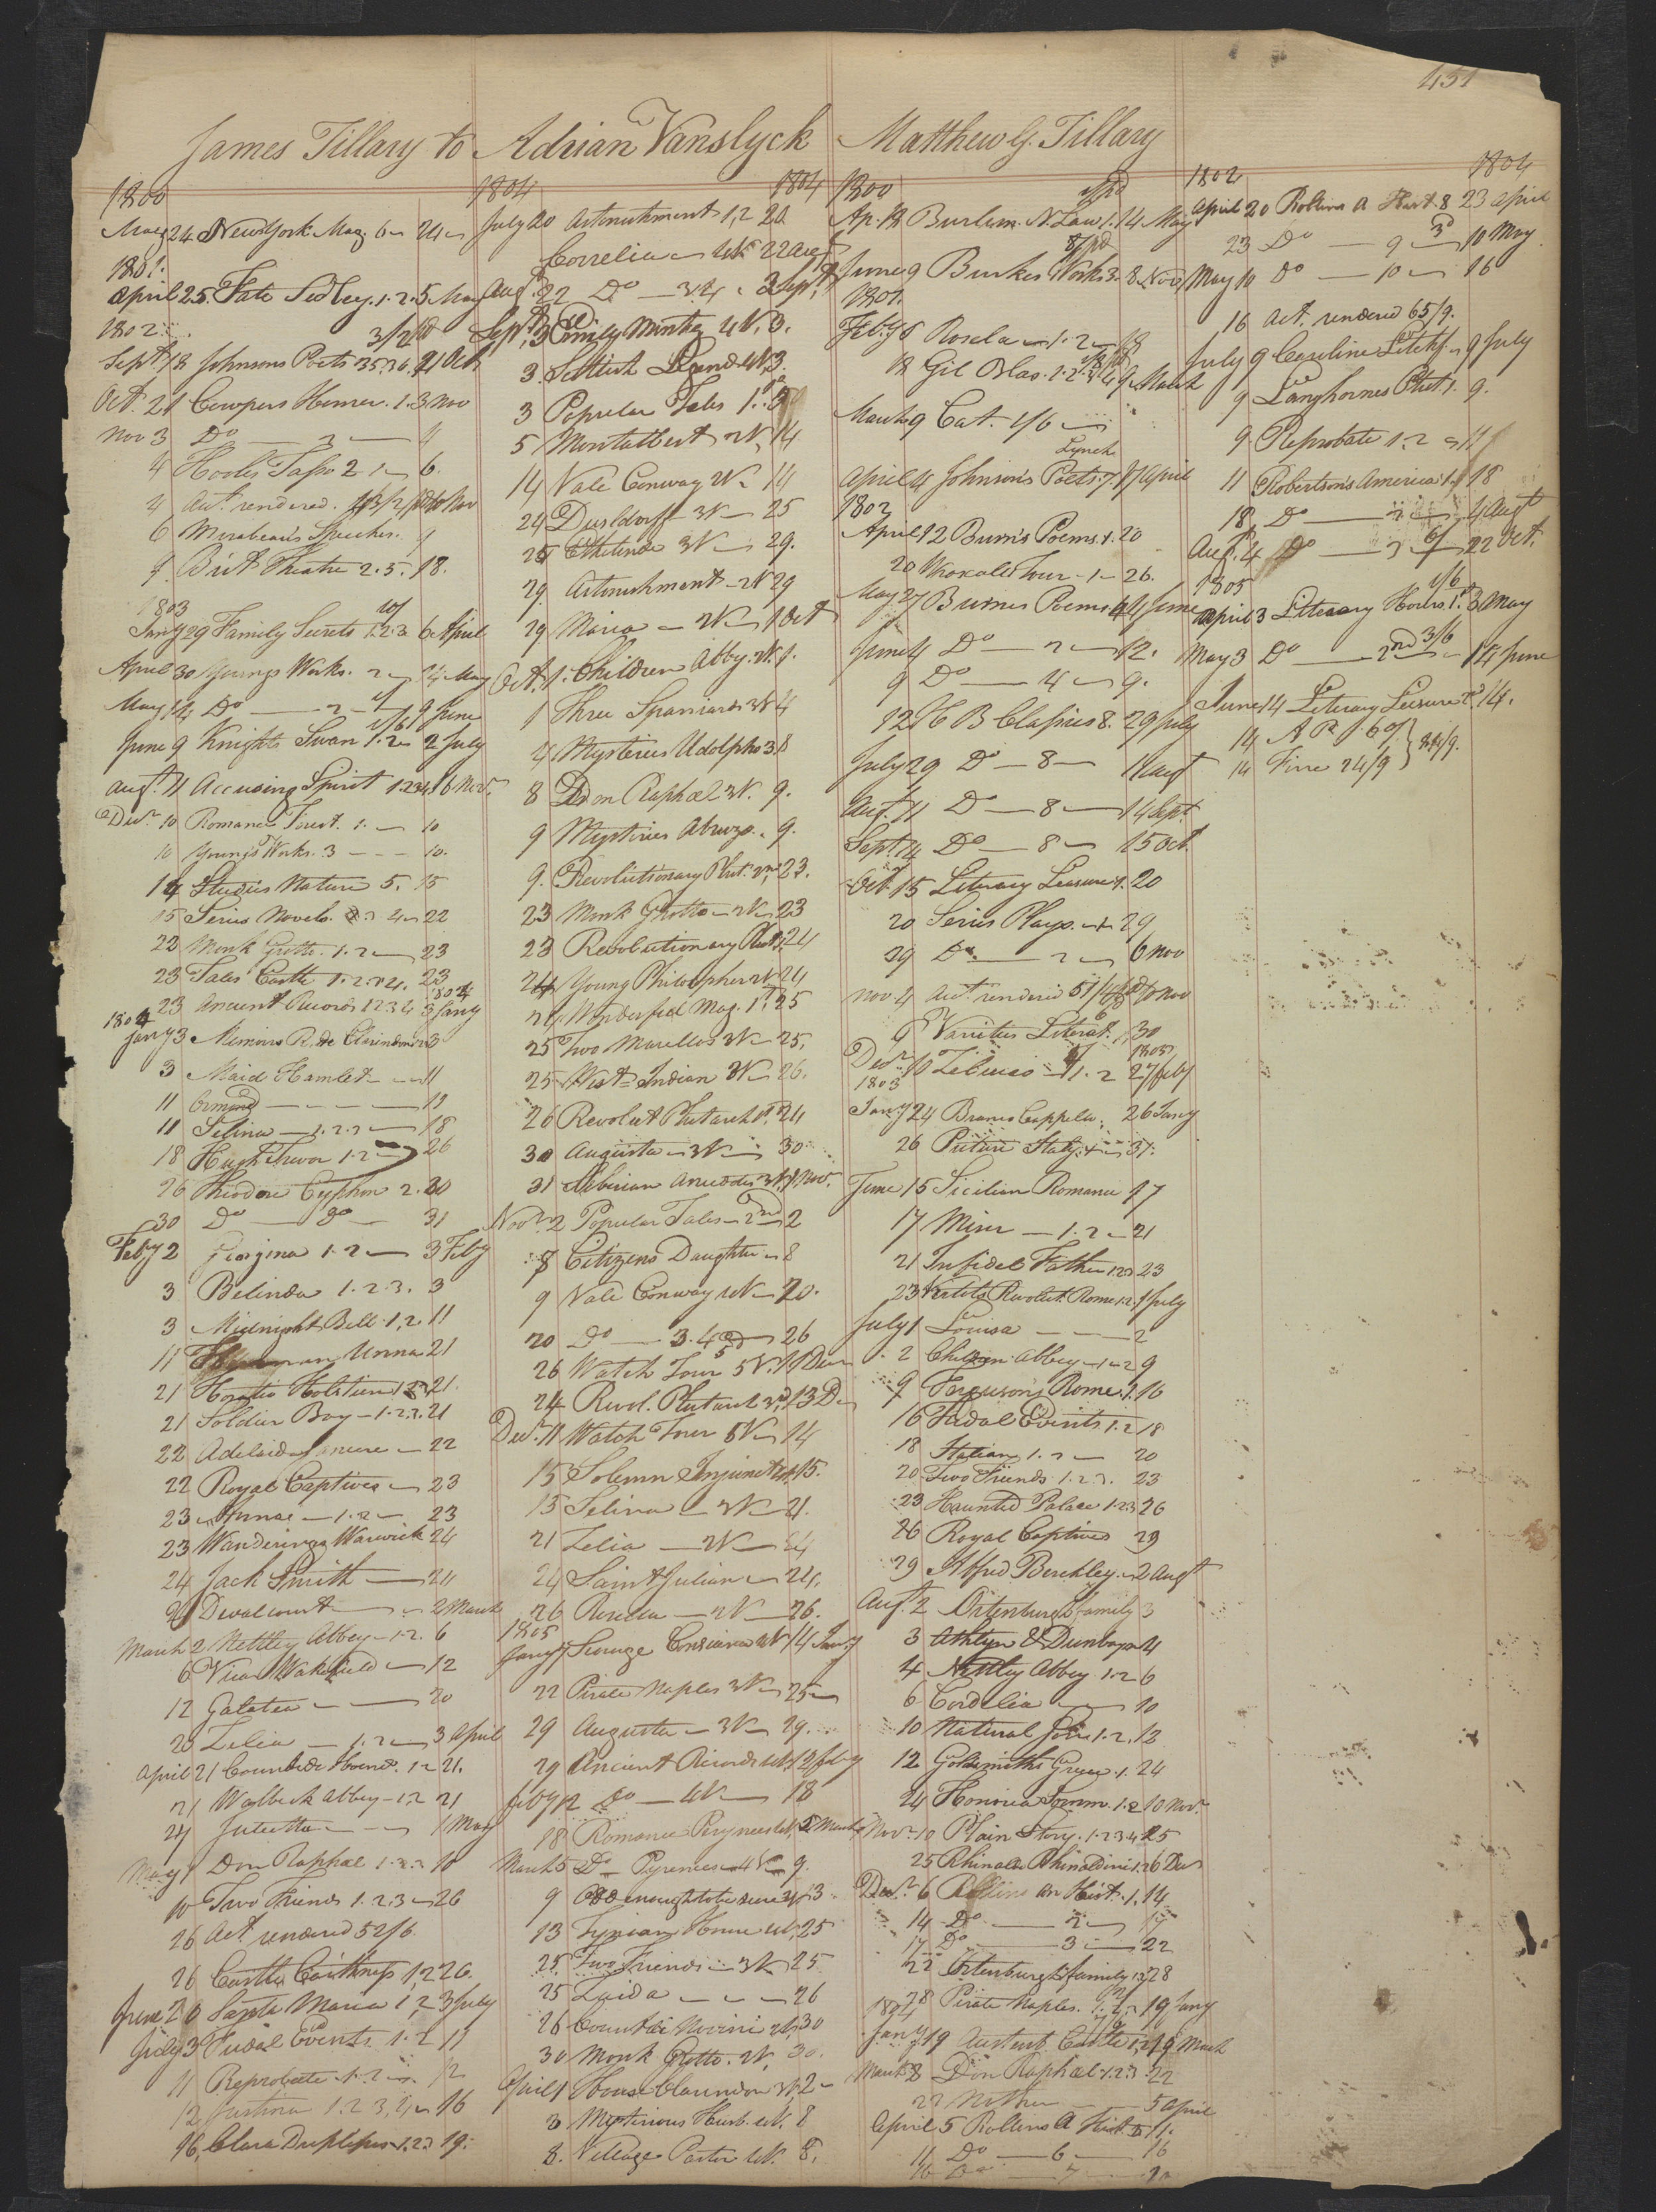 451
James Tillary to Adrian Vanslyck
1800
May 24 New York Mag. 6 24
1801.
April 25. Fate Sedley. 1.2. 5 May
1802
Sept 18 Johnsons Poets 35.36. 21 Oct
Oct. 21 Cowpers Homer. 1. 3 Nov
Nov 3 Do 2 4
4 Hools Tasso 2 6.
4 Act. rendered.
6 Mirabeau's Speeches. 9
9 Brit Theatre 2.5. 18.
1803
Jany 29 Family Secrets 1.2.3 6 April
April 30 Youngs Works. 2 14 May
May 14 Do 2 9 June
June 9 Knights Swan 1.2 2 July
Augt. 11 Accusing Spirit 1.2.3.4 16 Nov.
Decr. 10 Romance Forest. 1. 10
10 Young's Works. 3 10.
14 Studies Nature 5. 15
15 Series Novels. 22
22 Monk Grotto. 1.2 23
23 Tales Castle 1.2.3.4. 23
1804
23 Ancient Records 1.2.3.4 3 Jany
1804
Jany 3 Memoirs R. de Clarendon 3
3 Maid Hamlet 11
11 Ormond 11
11 Selina 1.2.3 18
18 Hugh Trevor 1.2 26
26 Theodore Cyphon 2. 30
30 Do Do 31
Feby 2 Georgina 1.2 3 Feby
3 Belinda 1.2.3. 3
3 Midnight Bell. 1.2. 11
11 Unna 21
21 Horatio Holstein 1.2.3. 21.
21 Soldier Boy 1.2.3. 21
22 22
22 Royal Captives 23
23 1.2 23
23 Wanderings Warwick 24
24 Jack Smith 24
24 Devalcourt 2 March
March 2 Nettley Abbey 1.2. 6
6 Vicar Wakefield 12
12 Galatea 20
20 Zelia 1.2 3 April
April 21 1.2 21.
21 Welbeck Abbey 1.2 21
24 Julietta 1 May
May 1 Don Raphael 1.2.3 10
10 Two Friends 1.2.3 26
26 Act rendered 52/6
26 Castle Caithness 1,2 26.
June 26 Santa Maria 1,2 3 July
July 3 Fudal Events 1.2 11
11 Reprobate 1.2 12
12 Justina 1.2.3,4 16
16. Clara Duplessis 1.2.3 19.
1804 1804
July 20 Astonishment 1,2 20.
Correlia 22 Augt
Aug. 22 Do 3.4 3 Sept.
Sept. 3 Emily Montag 4V. 3.
3. Scottish Legend 4V. 3.
3 Popular Tales 1. 5
5 Montalbert 2V. 14
14 Vale Conway 2V 14
24 Dusldorff 3V 25
25 Ethelinde 3V 29.
29. Astonishment 2V 29
29 Maria 2V 1 Oct
Oct. 1. Children Abby. 2V. 1.
1 Three Spaniards 3V 4
4 Mysteries Udolpho 3. 8
8 Don Raphael 3V. 9.
9 Mysteries Abruzo. 9.
9. Revolutionary Plut. 2nd 23.
23 Monk Grotto 2V 23
23 Revolutionary Plut. 24
24 Young Philosopher 2V 24
24 Wonderful Mag. 1st 25
25 Two Marellos 2V 25.
25 West Indian 2V 26.
26 Revolut Plutarch 24
30 Augusta 3V 30
31 Siberian Anecdotes 3V. 1 Nov.
Novr. 2 Popular Tales 2nd 2
8 Citizens Daughter 8
9 Vale Conway 4V 20.
20 Do 3.4 26
26 Watch Tower 5V. 11 Decr
24 Revol. Plutarch 3d. 13 D
Decr. 11 Watch Tower 5V 14
15 Solemn Injunct 4V. 15.
15 Selina 3V 21.
21 Zelia 2V 24
24 Saint Julian 24.
26 Rosella 2V 26.
1805
Jany 7 Scourge Conscience 4V 14 Jany
22 Pirate Naples 3V 25
29 Augusta 3V 29.
29 Ancient Records 4V. 12 Feby
Feby 12 Do 4V 18
18 Romance Pyrenees 4V. 5 March
March 5 Do Pyrenees 4V 9.
9 Odd enough to be sure 2V 13
13 Tynian Home 4V. 25
25 Two Friends 3V 25.
25 Zaida 26
26 Count di Novini 2V. 30
30 Monk Grotto. 2V. 30.
April 1 House Claundon 3V. 2
3 Mysterious Husb. 4V. 8
8. Village Pastor 4V. 8.
Matthew G. Tillary
1800
Ap. 18 Burlem. N. Law 1. 14 May
June 9 Burkes Works 3. 8 Nov
1801.
Feby 6 Rosela 1.2 18
18 Gil Blas. 1.2.3.4 9 March
March 9 Cat. 1/6
Lynch
April 4 Johnson's Poets. 7. 17 April
1802
April 12 Burns Poems. 1. 20
20 Moxale Tour 1 26.
May 27 Burns Poems 4 June
June 4 Do 2 12.
9 Do 4 9.
12 H B Classics 8. 29 July
July 29 Do 8 11 Augt
Augt. 11 Do 8 14 Sept.
Sept. 14 Do 8 15 Oct.
Oct. 15 Literary Leisure 1. 20
20 Series Plays. 1 29
29 Do 2 6 Nov
Nov 4 Act. rendered 51/ Nov
9 Varieties Literat. 30
1803
Decr. 10 Zeluco 1.2 27 Feby
1803
Jany 24 Bianca Cappella. 26 Jany
26 Picture Italy. 31.
June 15 Sicilian Romance 17
17 Miser 1.2 21
21 Infidel Father 1.2.3 23
23 Vertots Revolut. Rome 1.2. 1 July
July 1 Louisa 2
2 Children Abbey 1.2 9
9 Ferguson's Rome. 1. 16
16 Fudal Events 1.2 18
18 Italian 1.2 20
20 Two Friends 1.2.3. 23
23 Haunted Palace 1.2.3 26
26 Royal Captives 29
29 Alfred Berkley 2 Augt
Augt. 2 Ortenburgh family 3
3 Athlyn & Dunbayn 4
4 Nettley Abbey 1.2 6
6 Cordelia 10
10 Natural Son 1.2. 12
12 Goldsmiths Greece. 1. 24
24 Honoria Somm. 1.2 10 Nov.
Novr. 10 Plain Story. 1.2.3.4 25
25 Rhinaldo Rhinaldini 1.2. 6 Decr
Decr. 6 Rollins An Hist. 1. 14
14 Do 2 17
17 Do 3 22
22 Ortenburgh family 1.2 28
28 Pirate Naples. 1.2.3 19 Jany
1804
Jany 19 Castle 1,2 19 March
March 8 Don Raphael 1.2.3 22
22 Mother 5 April
April 5 Rollins A Hist. 5 11.
11 Do 6 16
16 Do 7 20
1802 1804
April 20 Rollins A Hist. 8 23 April
23 Do 9 10 May
May 10 Do 10 16
16 Act. rendered 65/9.
July 9 Caroline Litchf. 9 July
9 Langhornes Plut. 1. 9.
9. Reprobate 1.2 11
11 Robertson's America 1. 18
18. Do 2 4 Augt
Augt. 4 Do 3 22 Oct.
1805
April 3 Literary Hours 1st 3 May
May 3 Do 2nd 3/6 14 June
June 14 Literary Leisure 14.
14 A R 60/.
14 Fine 24/9 } 84/9.